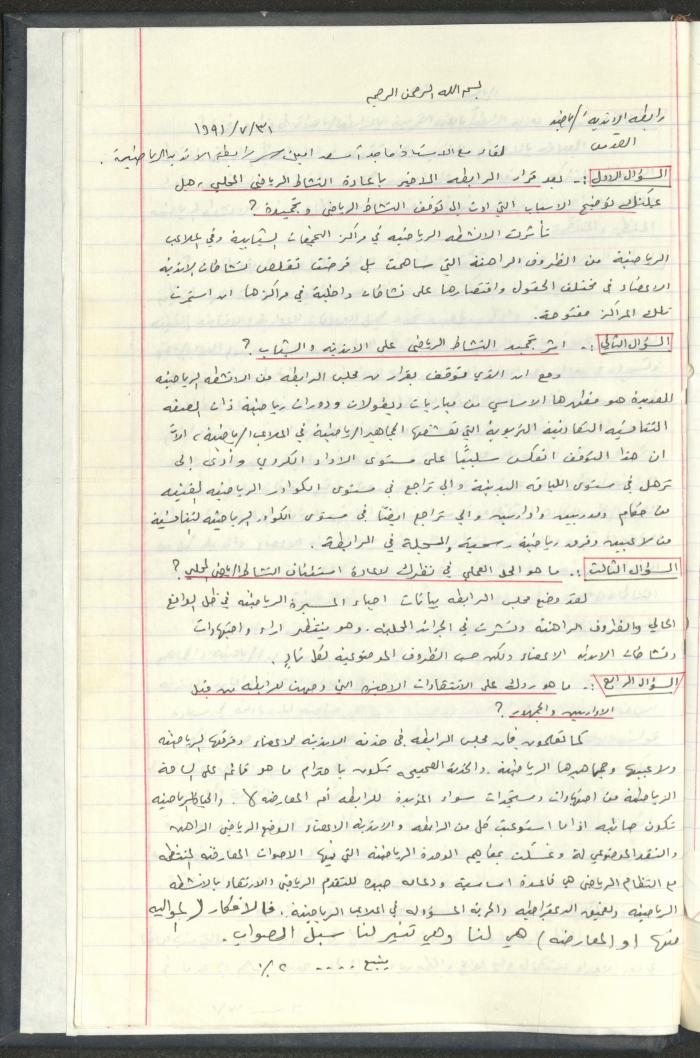 بسم الله الرحمن الرحيم
رابطة الاندية /
القدس ٣١ / ٧ / ١٩٩١
لقاء مع الاستاذ ماجد أسعد امين سر رابطة الاندية الرياضية .
السؤال الاول :- بعد قرار الرابطة الاخير باعادة النشاط الرياضي المحلي ، هل
يمكنك توضيح الاسباب التي ادت الى توقف النشاط الرياضي وتجميده ؟
تأثرت الانشطه الرياضيه في مراكز التجمعات الشبابية وفي الملاعب
الرياضية من الظروف الراهنة التي ساهمت بل فرضت تقلص نشاطات الاندية
الاعضاء في مختلف الحقول واقتصارها على نشاطات داخلية في مراكزها ان استمرت
تلك المراكز مفتوحة .
السؤال الثاني :- اثر تجميد النشاط الرياضي على الانديه والشباب ؟
ومع ان الذي توقف بقرار من مجلس الرابطه من الانشطه الرياضيه
العديدة هو مظهرها الاساسي من مباريات وبطولات ودورات رياضية ذات الصفه
التنافسيه التعاونيه التربوية التي تعشقها الجماهير الرياضية في الملاعب الرياضية ، الاّ
ان هذا التوقف انعكس سلبيًا على مستوى الاداء الكروي وأدى إلى
ترهل في مستوى اللياقه البدنية والى تراجع في مستوى الكوادر الرياضيه الفنيه
من حكام ومدربين واداريين والى تراجع ايضًا في مستوى الكوادر الرياضيه التنافسية
من لاعبين وفرق رياضية رسمية والمسجلة في الرابطة .
السؤال الثالث :- ما هو الحل العملي في نظرك لاعادة استئناف النشاط الرياضي المحلي ؟
لقد وضع مجلس الرابطه بيانات احياء المسيرة الرياضيه في ظل الواقع
الحالي والظروف الراهنة ونشرت في الجرائد المحليه . وهو ينتظر اراء واجتهادات
ونشاطات الانديه الاعضاء ولكن حسب الظروف الموضوعيه لكل نادٍ .
السؤال الرابع :- ما هو ردك على الانتقادات الاخيرة التي وجهت للرابطه من قبل
الاداريين والجمهور ؟
كما تعلمون فإن مجلس الرابطه في خدمة الانديه الاعضاء وفرقها الرياضيه
ولاعبيها وجماهيرها الرياضية . والخدمة الصحيحه تتكون باحترام ما هو قائم على الساحة
الرياضية من اجتهادات ومستجدات سواء المؤيدة للرابطه أم المعارضه لها . والحياة الرياضيه
تكون صائبه اذا ما استوعبت كل من الرابطه والانديه الاعضاء الوضع الرياضي الراهن
والنقد الموضوعي له وتمسكت بمفاهيم الوحدة الرياضيه التي فيها الاصوات المعارضه المنتظمه
مع النظام الرياضي هي قاعدة اساسية ودعامه جيده للتقدم الرياضي والارتقاء بالانشطه
الرياضيه وتعميق الديمقراطيه والحرية المسؤوله في الملاعب الرياضية . فالافكار ( المواليه
منها او المعارضه ) هي لنا وهي تنير لنا سبل الصواب .
يتبع ....... ٢